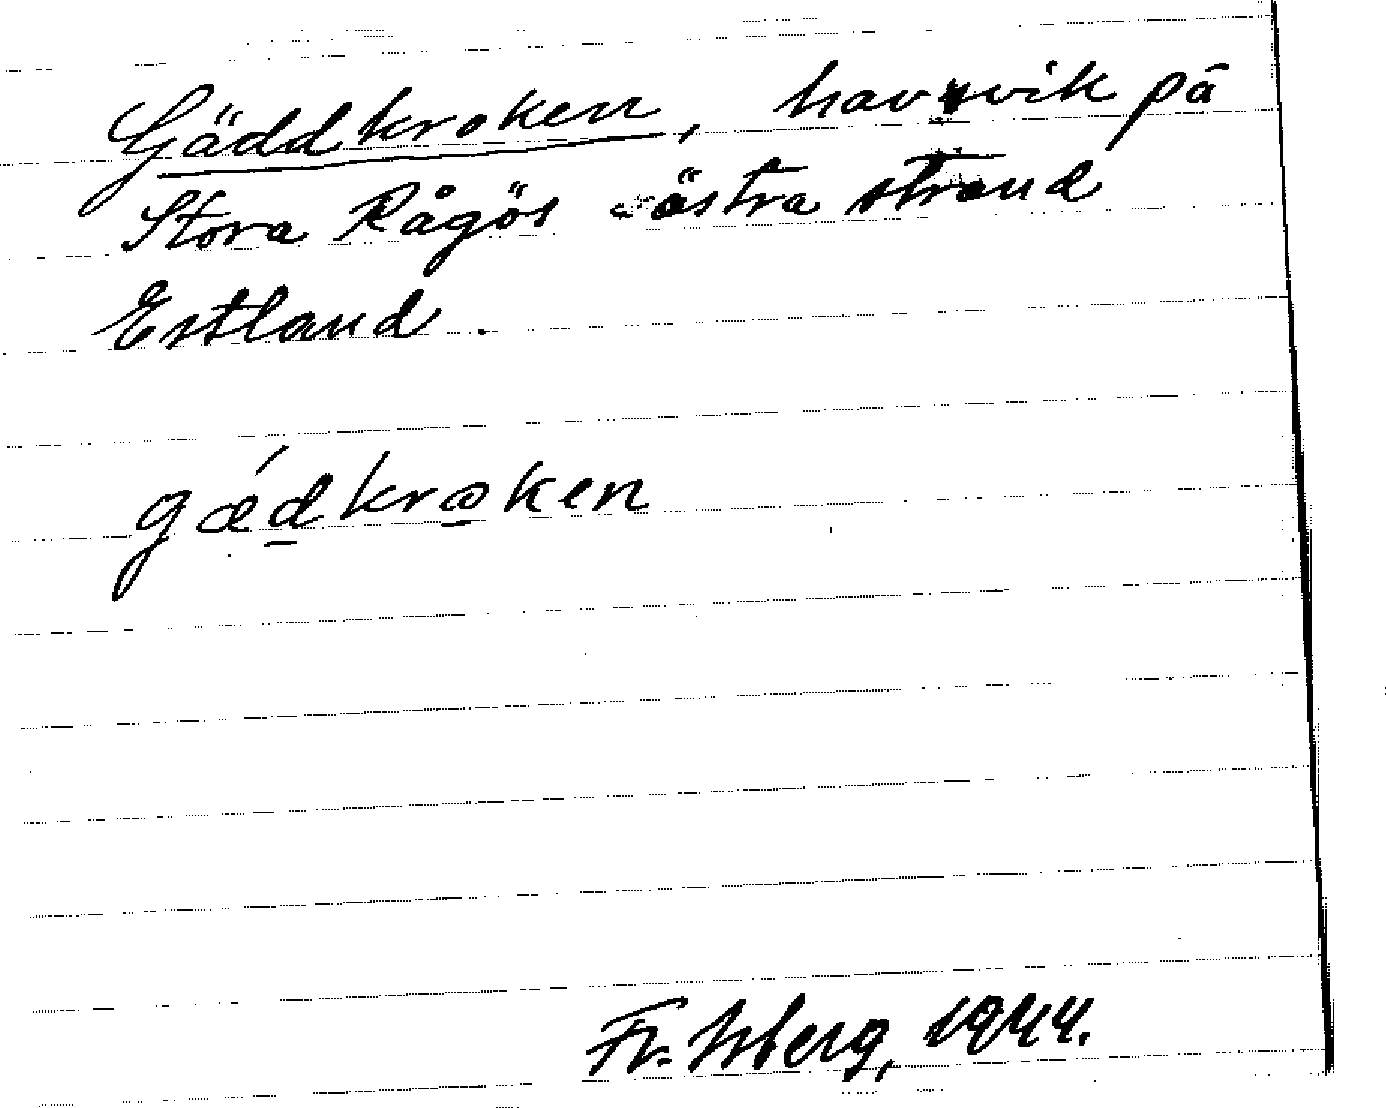 Gäddkroken, havsvik på
Stora Rågös östra strand
Estland.
gǽdkroken
Fr. Isberg, 1944.